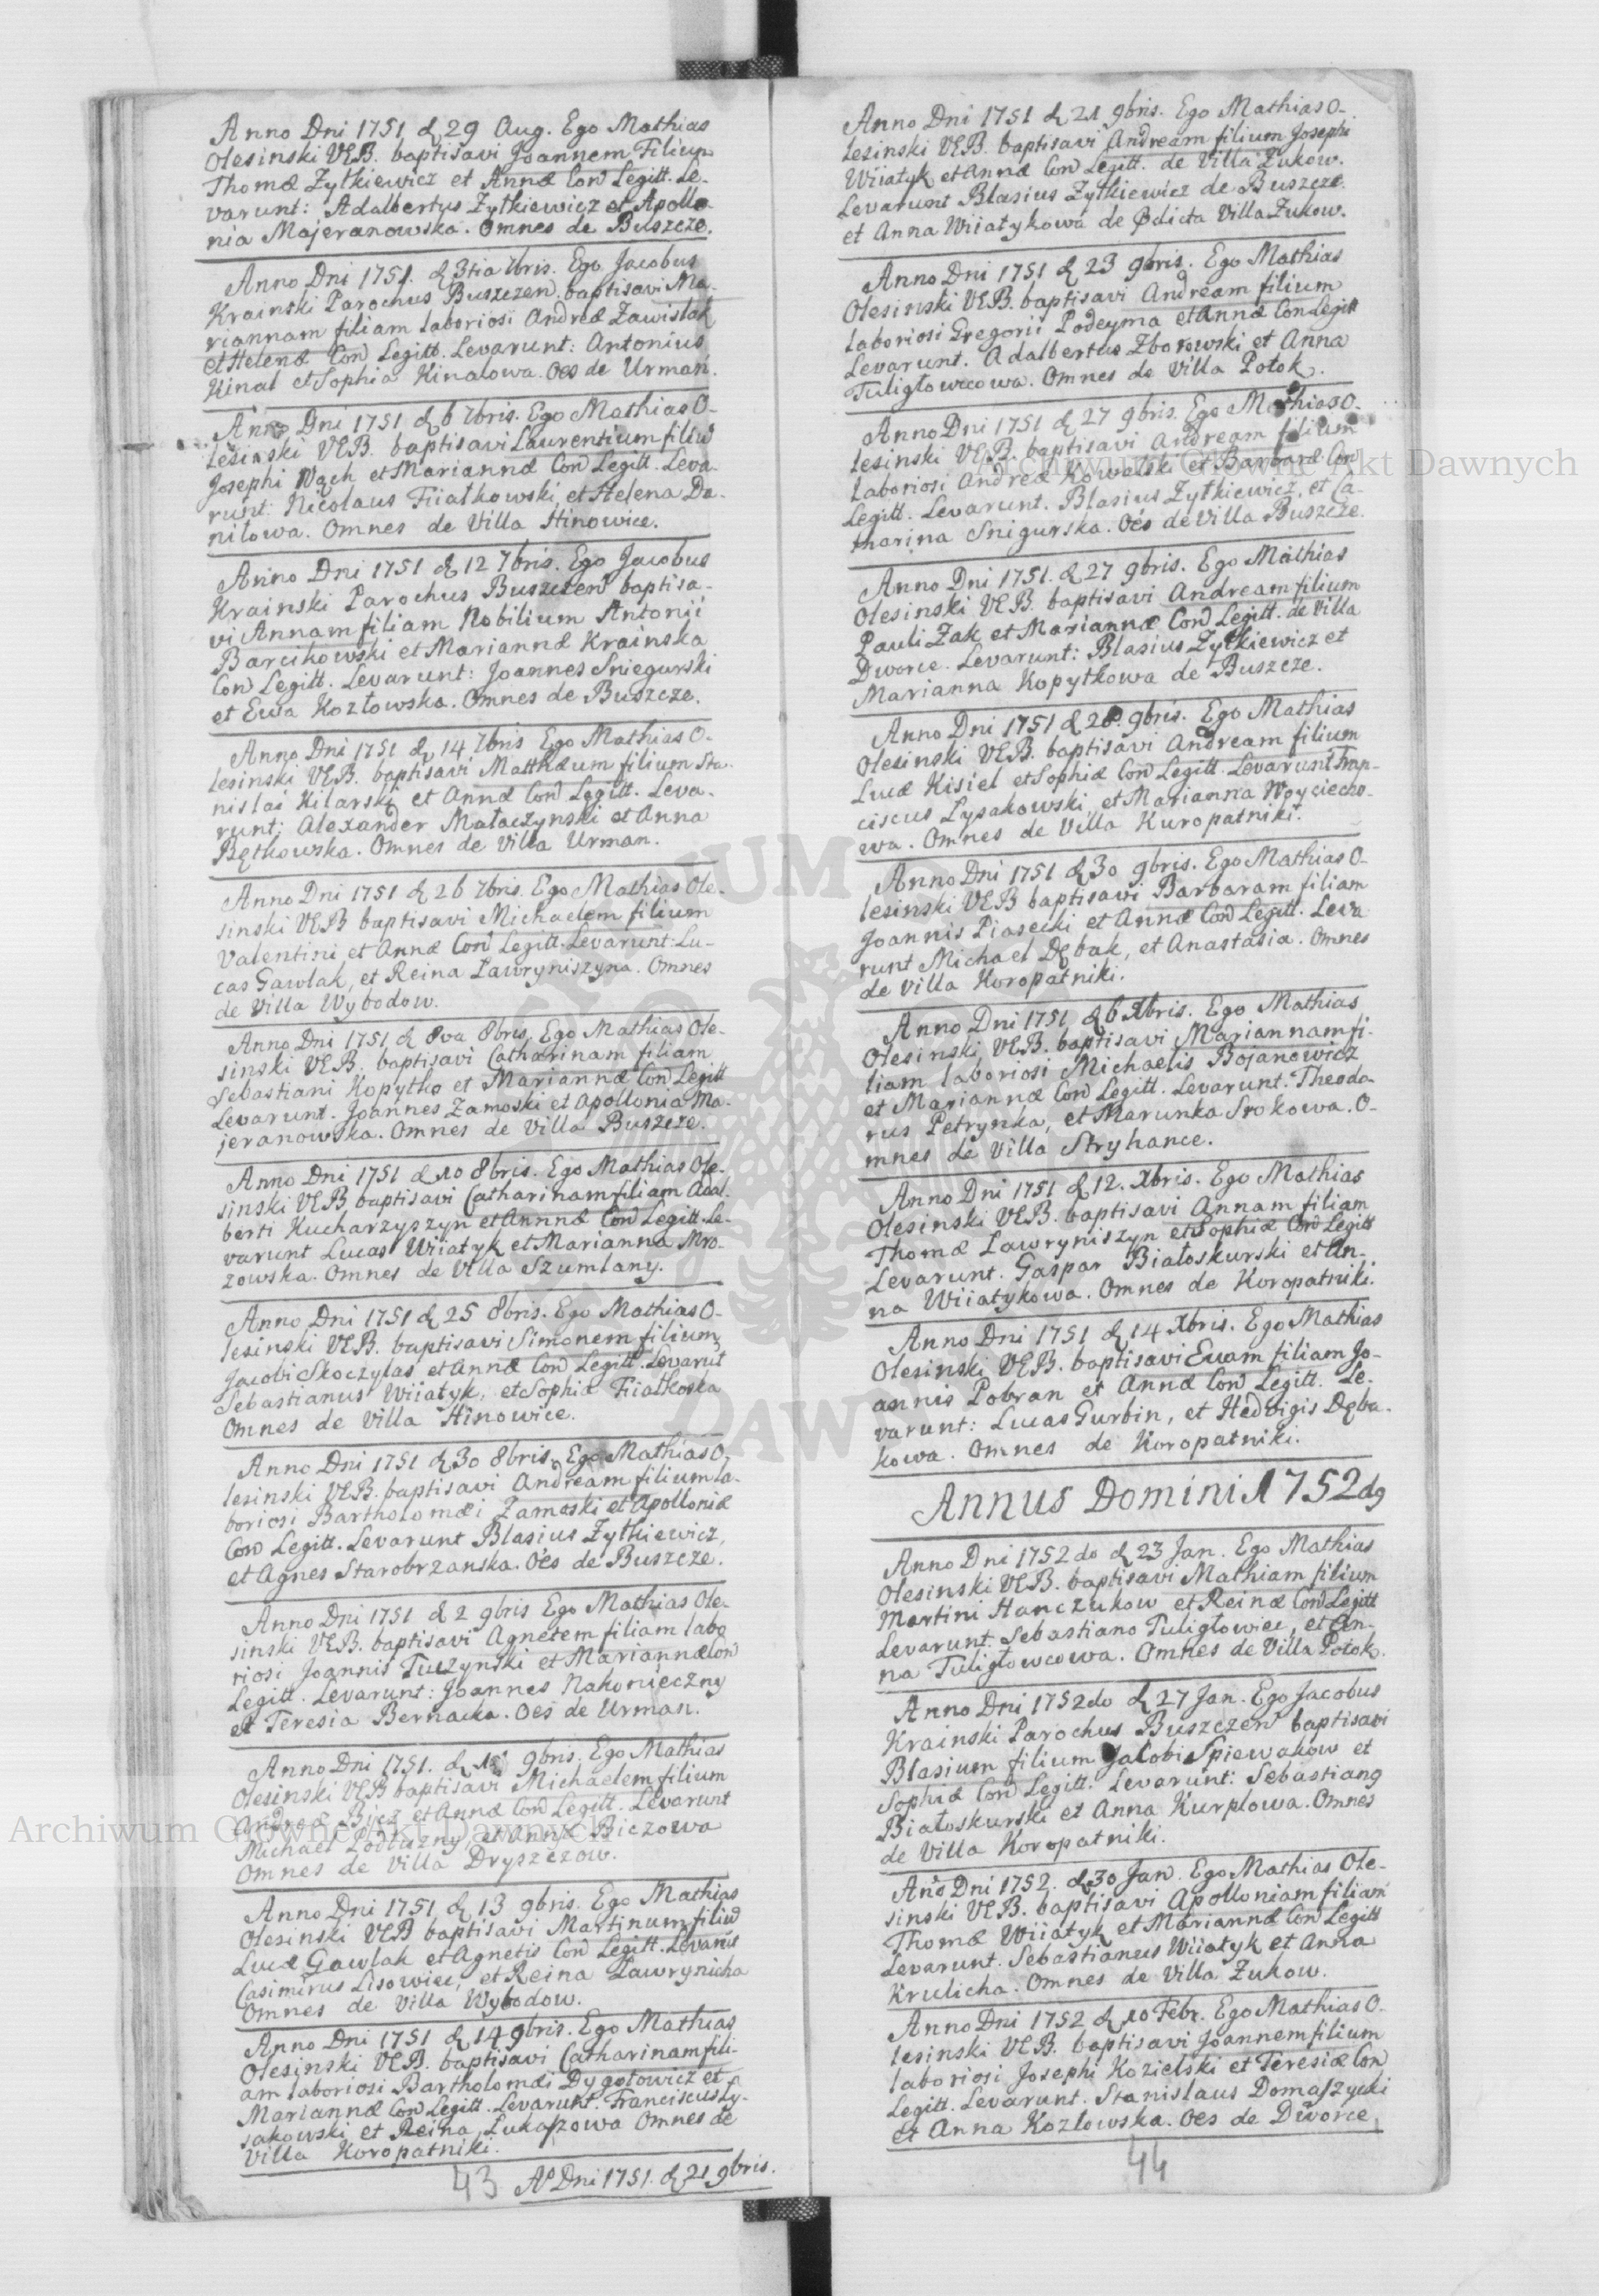 Anno Dni 1751 d 29 Aug. Ego Mathias
Olesinski VEB. baptisavi Joannem Filium
Thomæ Zytkiewicz et Annæ Con Legitt. Le-
varunt: Adalbertus Zytkiewicz et Apollo-
nia Majeranowska. Omnes de Buszcze.
Anno Dni 1751. d 3tia 7bris. Ego Jacobus
Krainski Parochus Buszczen baptisavi Ma-
riannam filiam laboriosi Andreæ Zawislak
et Helenæ Con Legitt. Levarunt: Antonius
Kinal et Sophia Kinalowa. Oes de Urmań.
Anno Dni 1751 d 6 7bris. Ego Mathias O-
lesinski VEB. baptisavi Laurentium filiu
Josephi Wąch et Mariannæ Con Legitt. Leva-
runt: Nicolaus Fiiałkowski et Helena Da-
nilowa. Omnes de Villa Hinowice.
Anno Dni 1751 d 12 7bris. Ego Jacobus
Krainski Parochus Buszczen baptisa-
vi Annam filiam Nobilium Antonii
Barcikowski et Mariannæ Krainska
Con Legitt. Levarunt: Joannes Sniegurski
et Ewa Kozłowska. Omnes de Buszcze.
Anno Dni 1751 d 14 7bris Ego Mathias O-
lesinski VEB. baptisavi Matthæum filium Sta-
nislai Kilarski et Annæ Con Legitt. Leva-
runt; Alexander Małaczynski et Anna
Bętkowska. Omnes de Villa Urman.
Anno Dni 1751 d 26 7bris Ego Mathias Ole-
sinski VEB baptisavi Michaelem filium
Valentini et Annæ Con Legitt. Levarunt: Lu-
cas Gawlak, et Reina Ławryniszyna. Omnes
de Villa Wybodow.
Anno Dni 1751 d 8va 8bris Ego Mathias Ole-
sinski VEB. baptisavi Catharinam filiam
Sebastiani Kopytko et Mariannæ Con Legitt
Levarunt. Joannes Zamoski et Apollonia Ma-
jeranowska. Omnes de Villa Buszcze.
Anno Dni 1751 d 10 8bris. Ego Mathias Ole-
sinski VEB baptisavi Catharinam filiam Adal-
berti Kucharzyszyn et Annæ Con Legitt. Le-
varunt Lucas Wiiatyk et Marianna Mro-
zowska. Omnes de Villa Szumlany.
Anno Dni 1751 d 25 8bris. Ego Mathias O-
lesinski VEB. baptisavi Simonem filium
Jacobi Skoczylas et Annæ Con Legitt. Levarut
Sebastianus Wiiatyk, et Sophia Fiiałkoska
Omnes de Villa Hinowice.
Anno Dni 1751 d 30 8bris. Ego Mathias O-
lesinski VEB. baptisavi Andream filium la-
boriosi Bartholomæi Zamoski et Apolloniæ
Con Legitt. Levarunt Blasius Zytkiewicz,
et Agnes Starobrzanska. Oes de Buszcze.
Anno Dni 1751 d 2 9bris Ego Mathias Ole-
sinski VEB. baptisavi Agnetem filiam labo
riosi Joannis Tuczynski et Mariannæ Con
Legitt. Levarunt: Joannes Nakonieczny
et Teresia Bernacka. Oes de Urman.
Anno Dni 1751. d 9bris. Ego Mathias
Olesinski VEB baptisavi Michaelem filium
Andreæ Bicz et Annæ Con Legitt. Levarunt
Michael Podłuzny, et Anna Biczowa
Omnes de Villa Dryszczow.
Anno Dni 1751 d 13 9bris. Ego Mathias
Olesinski VEB baptisavi Martinum filiu
Lucæ Gawlak et Agnetis Con Legitt. Levarut
Casimirus Lisowiec, et Reina Ławrynicha
Omnes de Villa Wybodow.
Anno Dni 1751 d 14 9bris. Ego Mathias
Olesinski VEB. baptisavi Catharinam fili-
am laboriosi Bartholomæi Dygotowicz et
Mariannæ Con Legitt. Levarunt. Franciscus Ły-
sakowski, et Reina Łukaszowa Omnes de
Villa Koropatniki.
43 Ao Dni 1751. d 21 9bris.
Anno Dni 1751 d 21 9bris. Ego Mathias O-
lesinski VEB. baptisavi Andream filium Josephi
Wiiatyk et Annæ Con Legitt. de Villa Żukow.
Levarunt Blasius Zytkiewicz de Buszcze.
et Anna Wiiatykowa de pdicta Villa Żukow.
Anno Dni 1751 d 23 9bris. Ego Mathias
Olesinski VEB. baptisavi Andream filium
laboriosi Gregorii Podeyma et Annæ Con Legitt
Levarunt. Adalbertus Zborowski et Anna
Tuligłowcowa. Omnes de Villa Potok.
Anno Dni 1751 d 27 9bris. Ego Mathias O-
lesinski VEB. baptisavi Andream filium
laboriosi Andreæ Kowalski et Barbaræ Con
Legitt. Levarunt. Blasius Zytkiewicz, et Ca-
tharina Snigurska. Oes de Villa Buszcze.
Anno Dni 1751. d 27 9bris. Ego Mathias
Olesinski VEB. baptisavi Andream filium
Pauli Żak et Mariannæ Con Legitt. de Villa
Dworce. Levarunt: Blasius Zytkiewicz et
Marianna Kopytkowa de Buszcze.
Anno Dni 1751 d 28. 9bris. Ego Mathias
Olesinski VEB. baptisavi Andream filium
Lucæ Kisiel et Sophiæ Con Legitt. Levarunt Fran-
ciscus Łysakowski, et Marianna Woyciecho-
wa. Omnes de Villa Kuropatniki.
Anno Dni 1751 d 30 9bris. Ego Mathias O-
lesinski VEB baptisavi Barbaram filiam
Joannis Piasecki et Annæ Con Legitt. Leva
runt Michael Dębak, et Anastasia. Omnes
de Villa Koropatniki.
Anno Dni 1751 d 6 Xbris. Ego Mathias
Olesinski VEB. baptisavi Mariannam fi-
liam laboriosi Michaelis Bojanowicz
et Mariannæ Con Legitt. Levarunt. Theodo-
rus Petrynka, et Marunka Srokowa. O-
mnes de Villa Stryhance.
Anno Dni 1751 d 12. Xbris. Ego Mathias
Olesinski VEB. baptisavi Annam filiam
Thomæ Ławryniszyn et Sophiæ Con Legitt
Levarunt. Gaspar Białoskurski et An-
na Wiiatykowa. Omnes de Koropatniki.
Anno Dni 1751 d 14 Xbris. Ego Mathias
Olesinski VEB. baptisavi Evam filiam Jo-
annis Pobran et Annæ Con Legitt. Le-
varunt: Lucas Gurbin, et Hedvigis Dęba-
kowa. Omnes de Koropatniki.
Annus Domini 1752dg
Anno Dni 1752do d 23 Jan. Ego Mathias
Olesinski VEB. baptisavi Mathiam filium
Martini Hanczukow et Reinæ Con Legitt
Levarunt. Sebastiano Tuligłowiec, et An-
na Tuligłowcowa. Omnes de Villa Potok.
Anno Dni 1752do d 27 Jan. Ego Jacobus
Krainski Parochus Buszczen baptisavi
Blasium filium Jacobi Spiewakow et
Sophiæ Con Legitt. Levarunt: Sebastiang
Białoskurski et Anna Kurpłowa. Omnes
de Villa Koropatniki.
Ano Dni 1752. d 30 Jan. Ego Mathias Ole-
sinski VEB. baptisavi Apolloniam filiam
Thomæ Wiiatyk et Mariannæ Con Legitt
Levarunt. Sebastianus Wiiatyk et Anna
Krulicha. Omnes de Villa Żukow.
Anno Dni 1752 d 10 Febr. Ego Mathias O-
lesinski VEB. baptisavi Joannem filium
laboriosi Josephi Kozielski et Teresiæ Con
Legitt. Levarunt. Stanislaus Domaszycki
et Anna Kozłowska. Oes de Dworce.
44
Archiwum Główne Akt Dawnych
Archiwum Główne Akt Dawnych